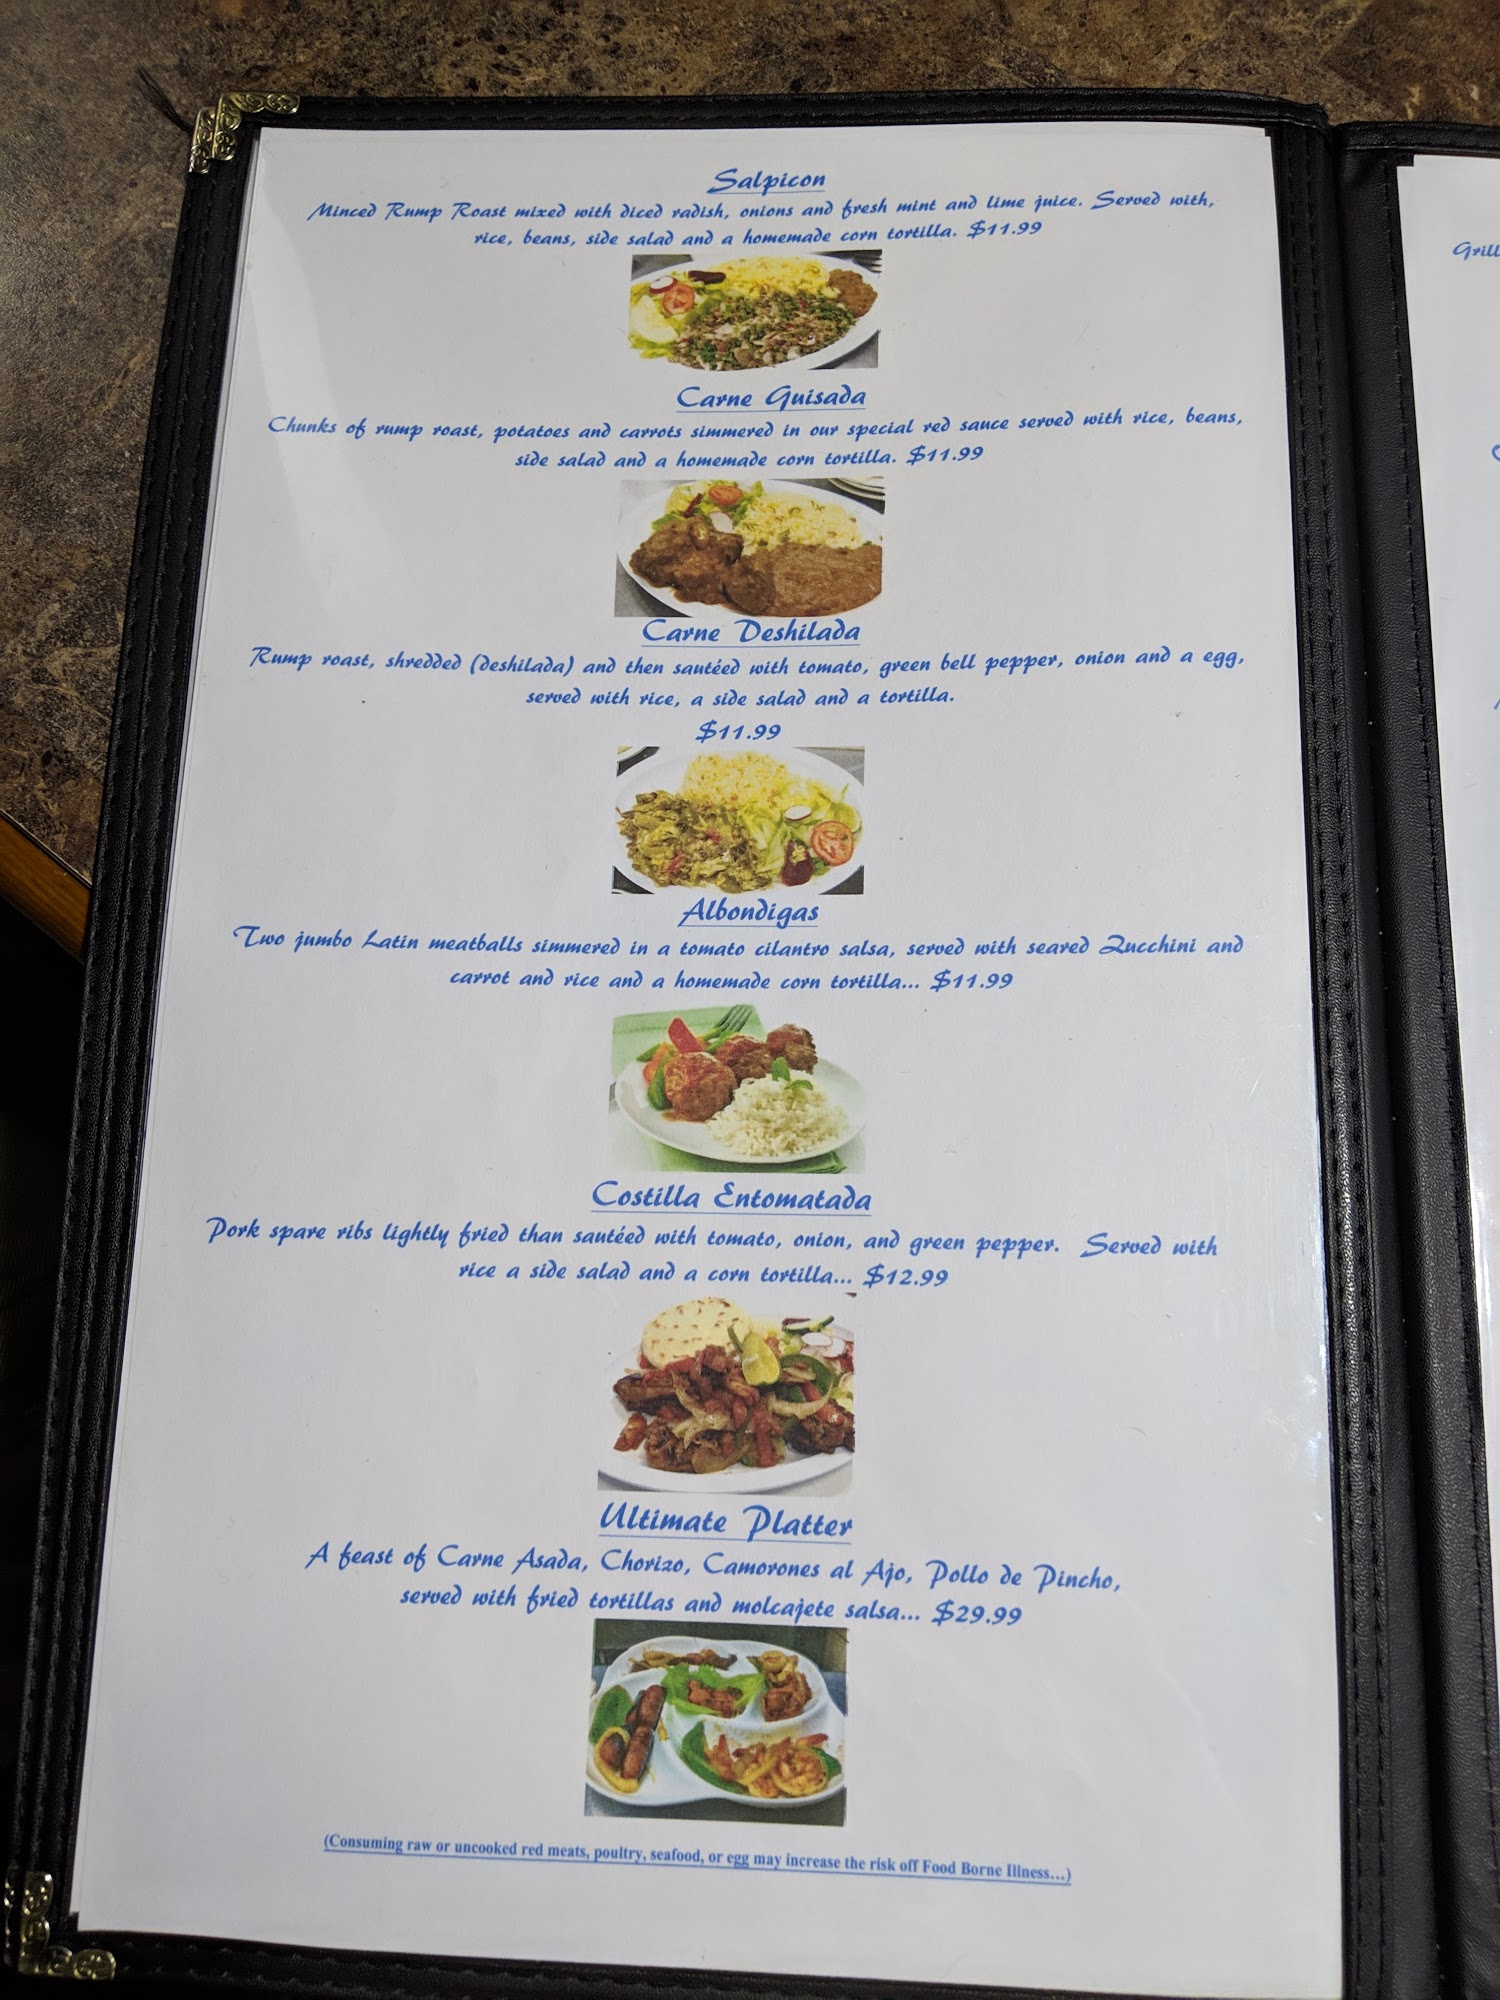 Salpicon
Minced Rump Roast mixed with diced radish, onions and fresh mint and lime juice. Served with,
rice, beans, side salad and a homemade corn tortilla. $11.99
Carne Guisada
Chunks of rump roast, potatoes and carrots simmered in our special red sauce served with rice, beans,
side salad and a homemade corn tortilla. $11.99
Carne Deshilada
Rump roast, shredded (deshilada) and then sautéed with tomato, green bell pepper, onion and a egg,
served with rice, a side salad and a tortilla.
$11.99
Albondigas
Two jumbo Latin meatballs simmered in a tomato cilantro salsa, served with seared Zucchini and
carrot and rice and a homemade corn tortilla... $11.99
Costilla Entomatada
Pork spare ribs lightly fried than sautéed with tomato, onion, and green pepper. Served with
rice a side salad and a corn tortilla... $12.99
Ultimate Platter
A feast of Carne Asada, Chorizo, Camorones al Ajo, Pollo de Pincho,
served with fried tortillas and molcajete salsa... $29.99
(Consuming raw or uncooked red meats, poultry, seafood, or egg may increase the risk off Food Borne Illness...)
Grill